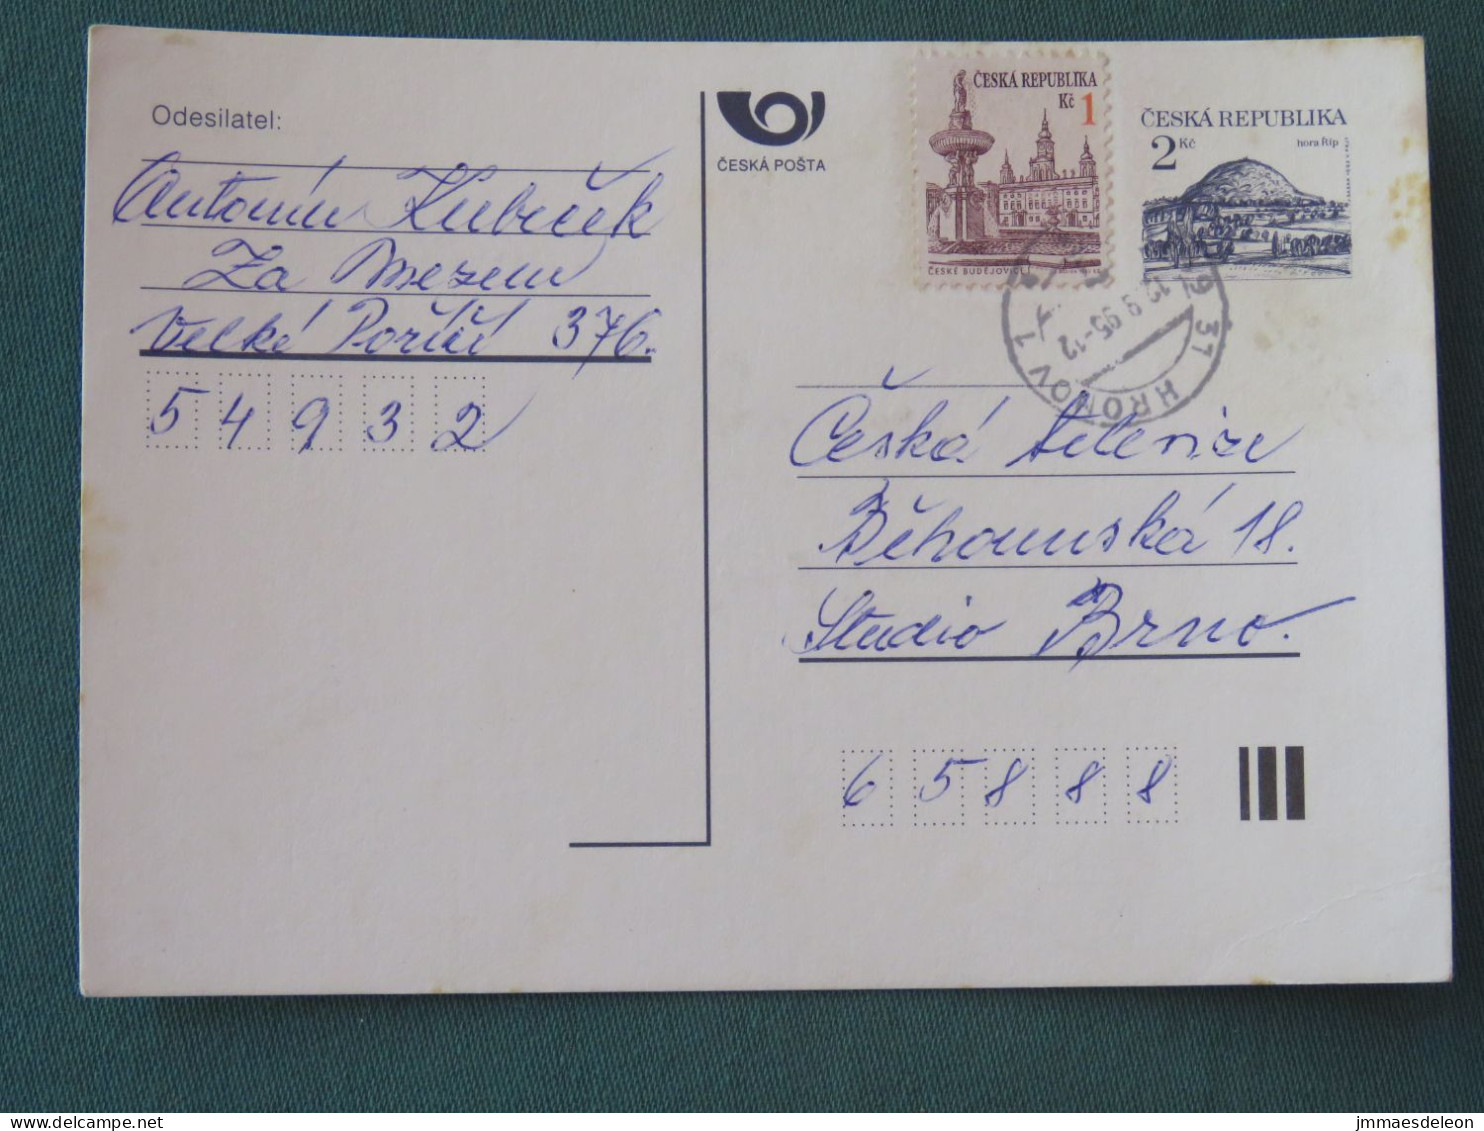 Odesilatel:
Antonín Kubeček
Za Mezem
Velké Poříčí 376.
54932
ČESKÁ POŠTA
ČESKÁ REPUBLIKA
Kč 1
ČESKÉ BUDĚJOVICE
ČESKÁ REPUBLIKA
2 Kč
hora Říp
12.9.95-12
31 HRONOV 1
Česká televize
Běhounská 18.
Studio Brno.
65888
jmmaesdeleon